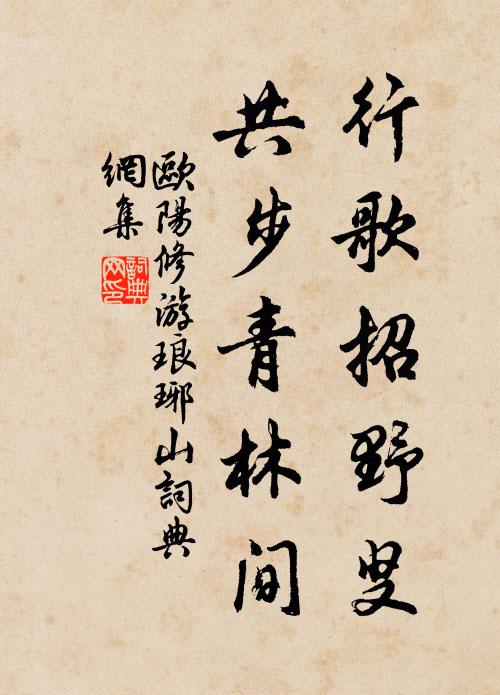 行歌招野叟
共步青林間
歐陽修游琅琊山詞典
網集
詞典
网印